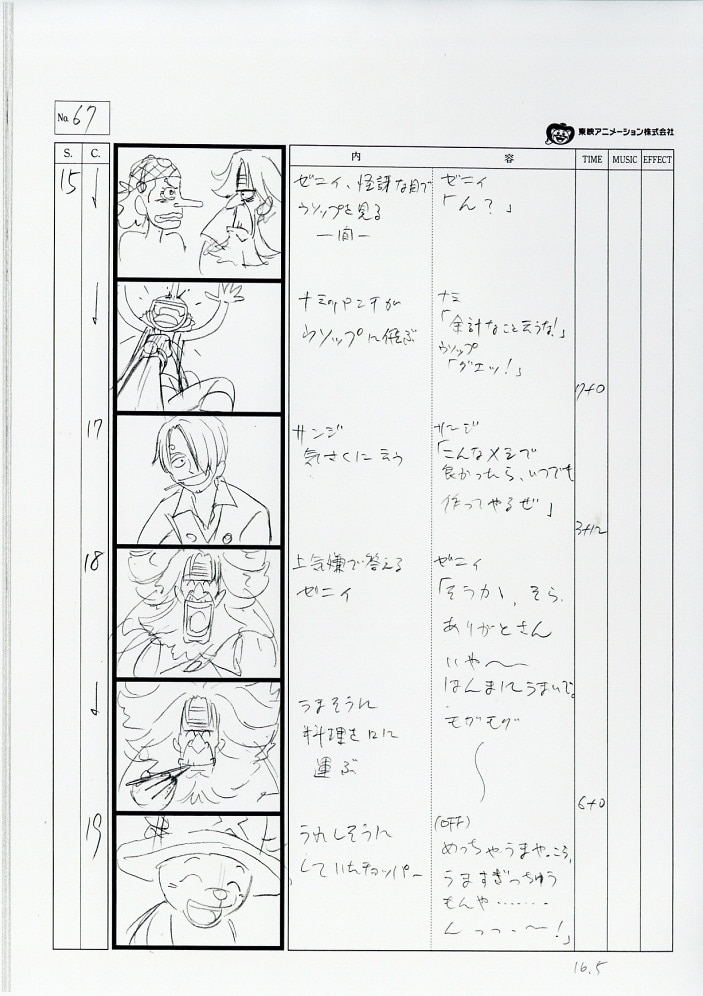 No. 67
東映アニメーション株式会社
S. C. 内 容 TIME MUSIC EFFECT
15
ゼニィ、怪訝な目で
ウソップを見る
一間一
ゼニィ
「ん?」
ナミのパンチが
ウソップに飛ぶ
ナミ
「余計なこと云うな!」
ウソップ
「グエッ!」
7+0
17
サンジ
気さくに云う
サンジ
「こんなメシで
良かったら、いつでも
作ってやるぜ」
3+12
18
上気嫌で答える
ゼニィ
ゼニィ
「そうか、そら
ありがとさん
いや〜
ほんまにうまいで。
モグモグ
うまそうに
料理を口に
運ぶ
6+0
19
うれしそうに
していたチョッパー
(OFF)
めっちゃうまや、こら、
うますぎっちゅう
もんや・・・・・・・
んっっ・〜!」
16.5